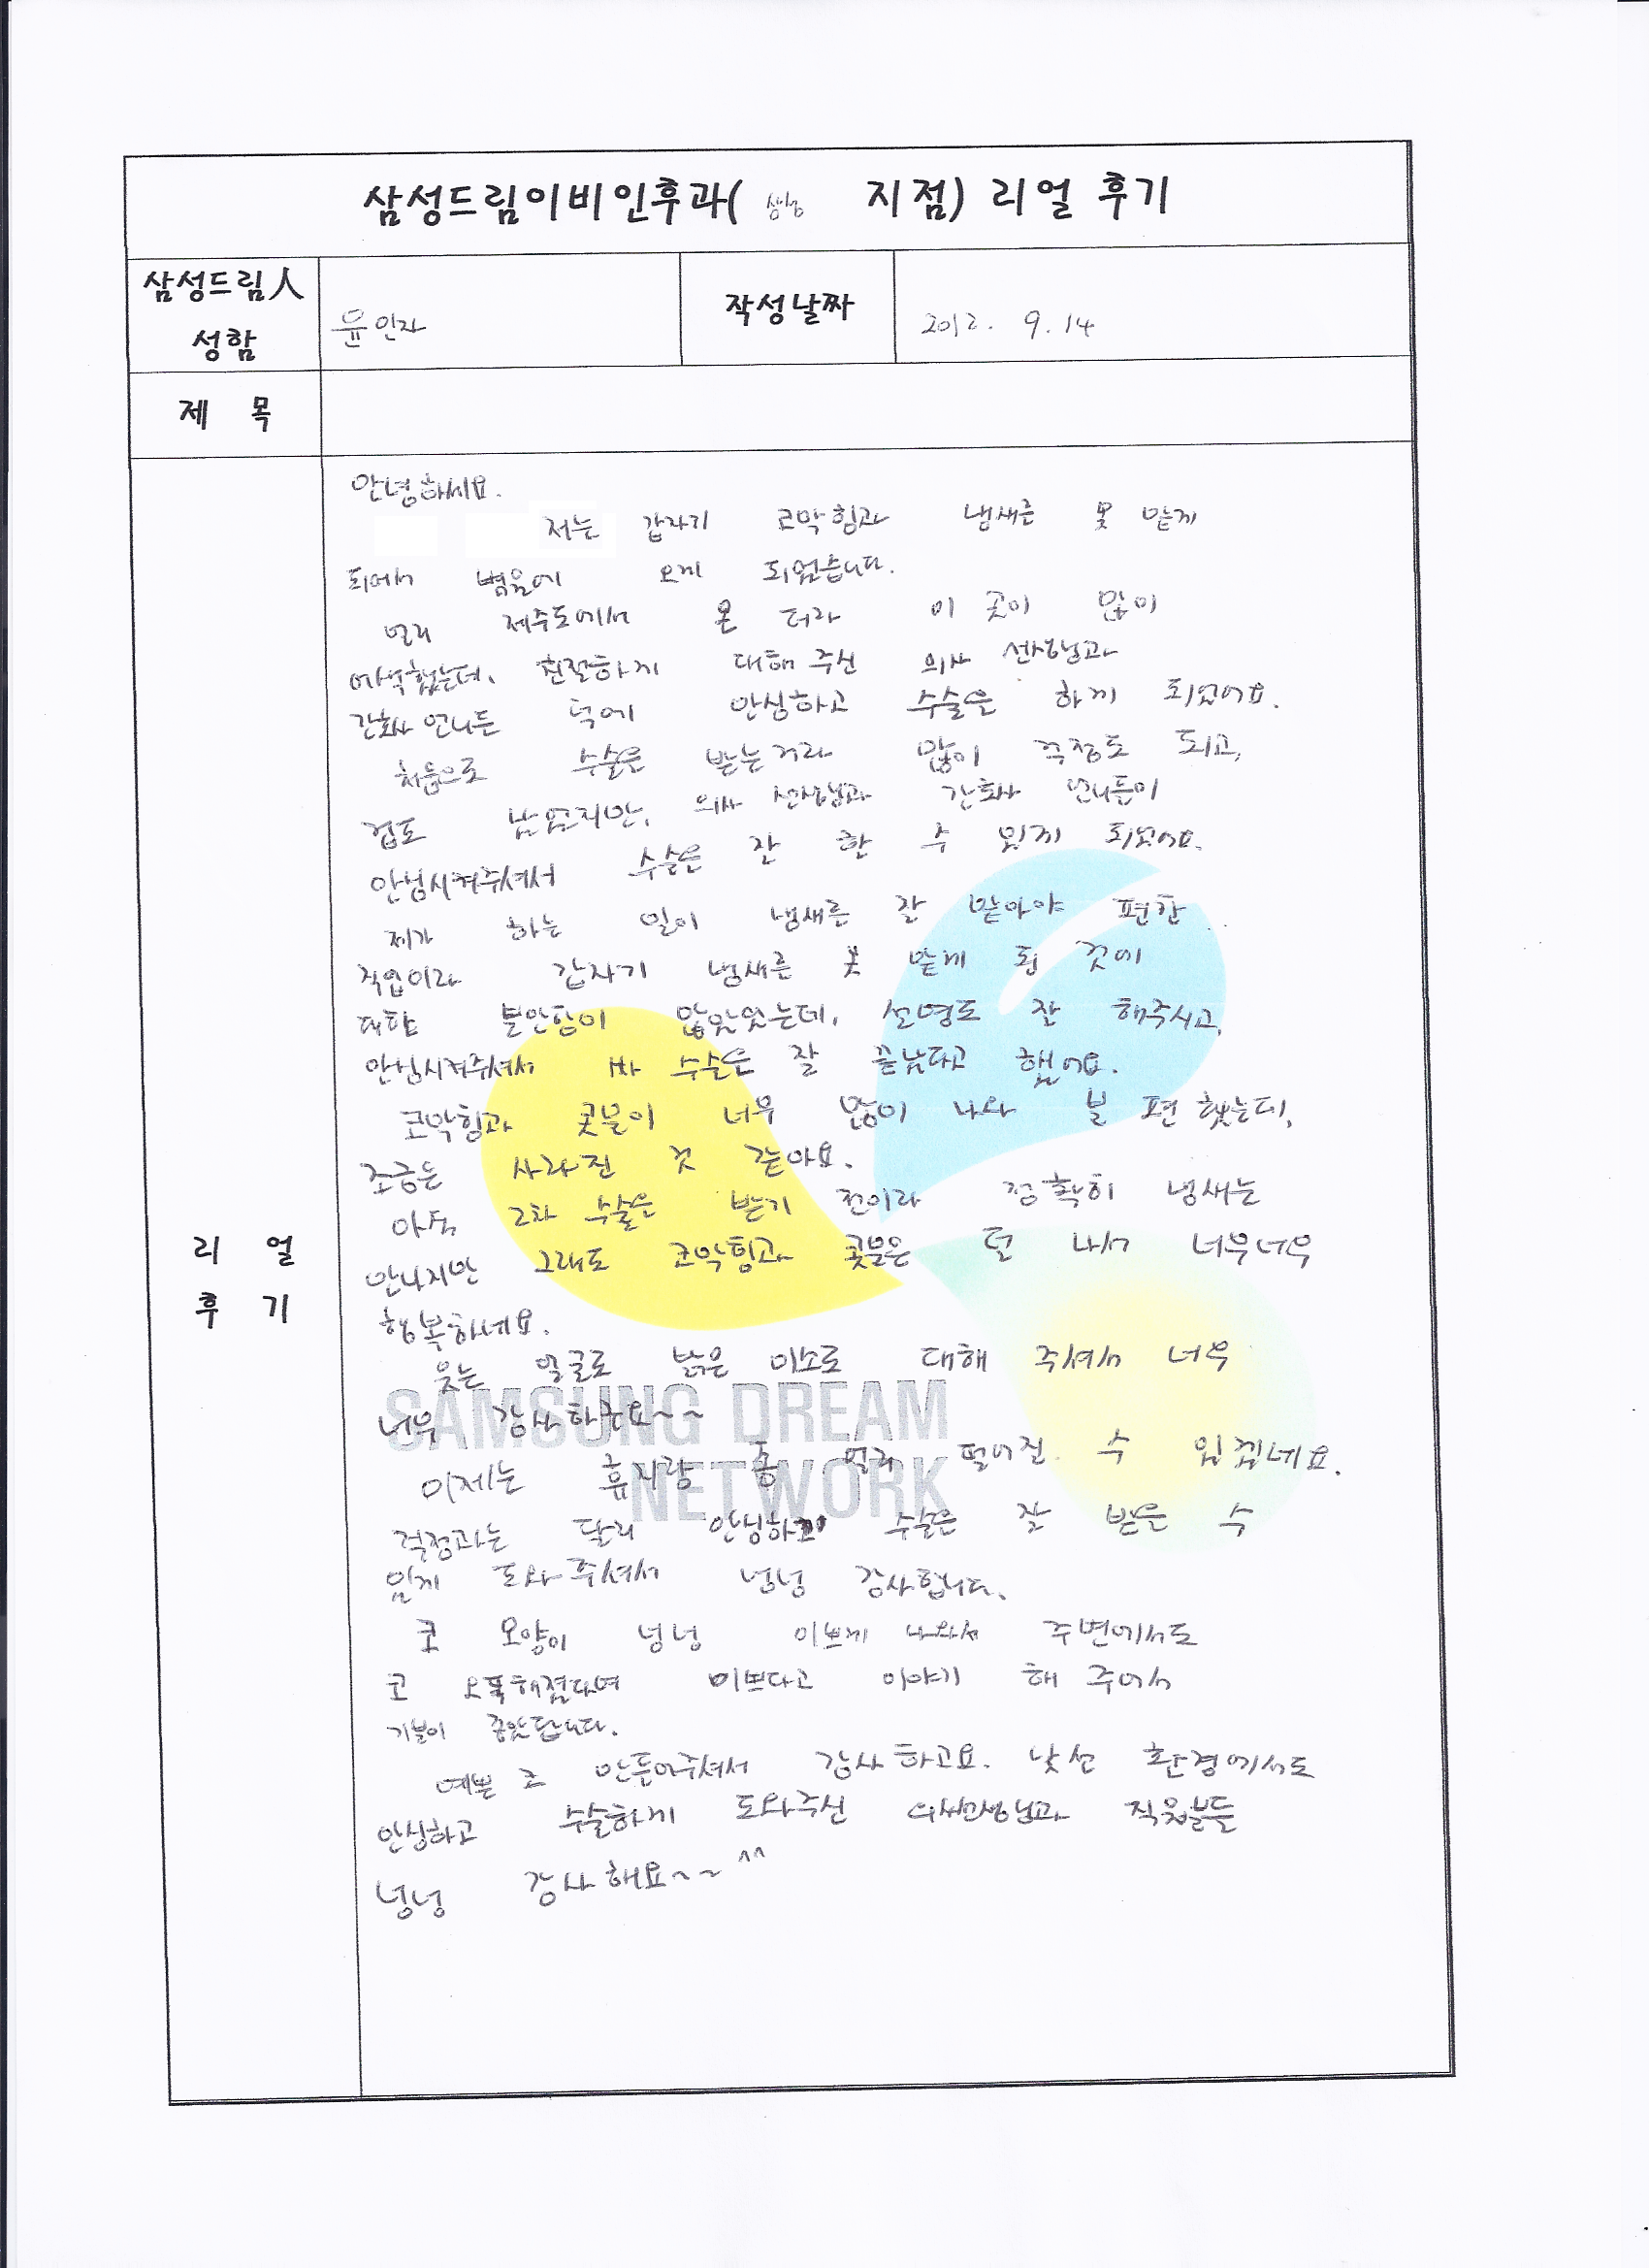 삼성드림이비인후과( 지점) 리얼 후기
삼성드림人
성함
윤인자
작성날짜
2012. 9. 14
제 목
리 얼
후 기
안녕하세요.
저는 갑자기 코막힘과 냄새를 못 맡게
되어서 병원에 오게 되었습니다.
멀리 제주도에서 온 터라 이 곳이 많이
어색했는데, 친절하게 대해 주신 의사 선생님과
간호사 언니들 덕에 안심하고 수술을 하게 되었어요.
처음으로 수술을 받는거라 많이 걱정도 되고,
겁도 났었지만, 의사 선생님과 간호사 언니들이
안심시켜주셔서 수술을 잘 할 수 있게 되었어요.
제가 하는 일이 냄새를 잘 맡아야 편한
직업이라 갑자기 냄새를 못 맡게 된 것에
대한 불안함이 많았었는데, 설명도 잘 해주시고,
안심시켜주셔서 수술을 잘 끝났다고 했어요.
코막힘과 콧물이 너무 많이 나와 불편했는데,
조금은 사라진 것 같아요.
아직 2차 수술을 받기 전이라 정확히 냄새는
안나지만 그래도 코막힘과 콧물은 덜 나서 너무너무
행복하네요.
웃는 얼굴로 밝은 미소로 대해 주셔서 너무
너무 감사하구요~~
이제는 휴지랑 좀 멀리 떨어질 수 있겠네요.
걱정과는 달리 안심하고 수술을 잘 받을 수
있게 도와주셔서 넝넝 감사합니다.
코 모양이 넝넝 이쁘게 나와서 주변에서도
코 오똑해졌다며 이쁘다고 이야기 해 주어서
기분이 좋았답니다.
예쁜 코 만들어주셔서 감사하고요. 낯선 환경에서도
안심하고 수술하게 도와주신 의사선생님과 직원분들
넝넝 감사해요~~^^
SAMSUNG DREAM
NETWORK